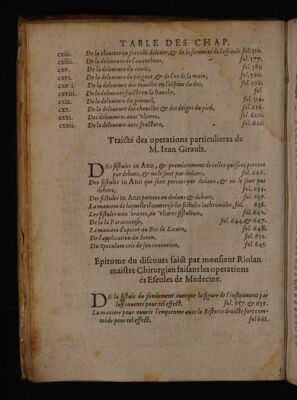 TABLE DES CHAP.
cxiii. De la fol. 510.
cxiiii. De la deloueure de l'auantbras, fol. 577.
cxv. De la deloueure du coude, fol. 589.
cxvi. De la deloueure du poignet, & de l'os de la main, fol. 590.
De la deloueure des rouelles en l'espine du dos, fol.
cxviii. De la deloueure faicte en la hanche, fol.
De la deloueure du genouil, fol. 514.
De la deloueure des cheuilles & des doigts du pied, fol. 616.
cxxi. Des deloueures auec vlceres, fol. 620.
cxxii. De la deloueure auec fracture, fol. 626.
Traicté des operations particulieres de
M. Iean Girault.
DEs fistules in Ano, & premierement de celles qui sont percees
par dehors, & ne le sont par dedans, fol. 626.
Des fistules in Ano qui sont percees par dedans, & ne le sont pas
dehors, fol. 634.
Des fistules in Ano percees en dedans & dehors, fol. 639.
La maniere de laquelle il conuient les fistules fol. 638.
Les fistules non vrayes, ou vlceres fistuleux, fol. 642.
De la Paracentese, fol. 644. & 647.
La maniere d'operer au Bec de Lieure, fol. 648.
De l'application du Seton, fol. 652.
Du Speculum oris de son inuention, fol. 645.
Epitome du discours faict par monsieur Riolan
maistre Chirurgien faisant les operations
és Escoles de Medecine.
DE la fistule du fondement auecque la figure de l'instrument par
luy inuenté pour tel effect, fol. 657. & 659.
La maniere pour ouurir l'empieme auec la Bistorie droicte fort commode
pour tel effect, fol 661.